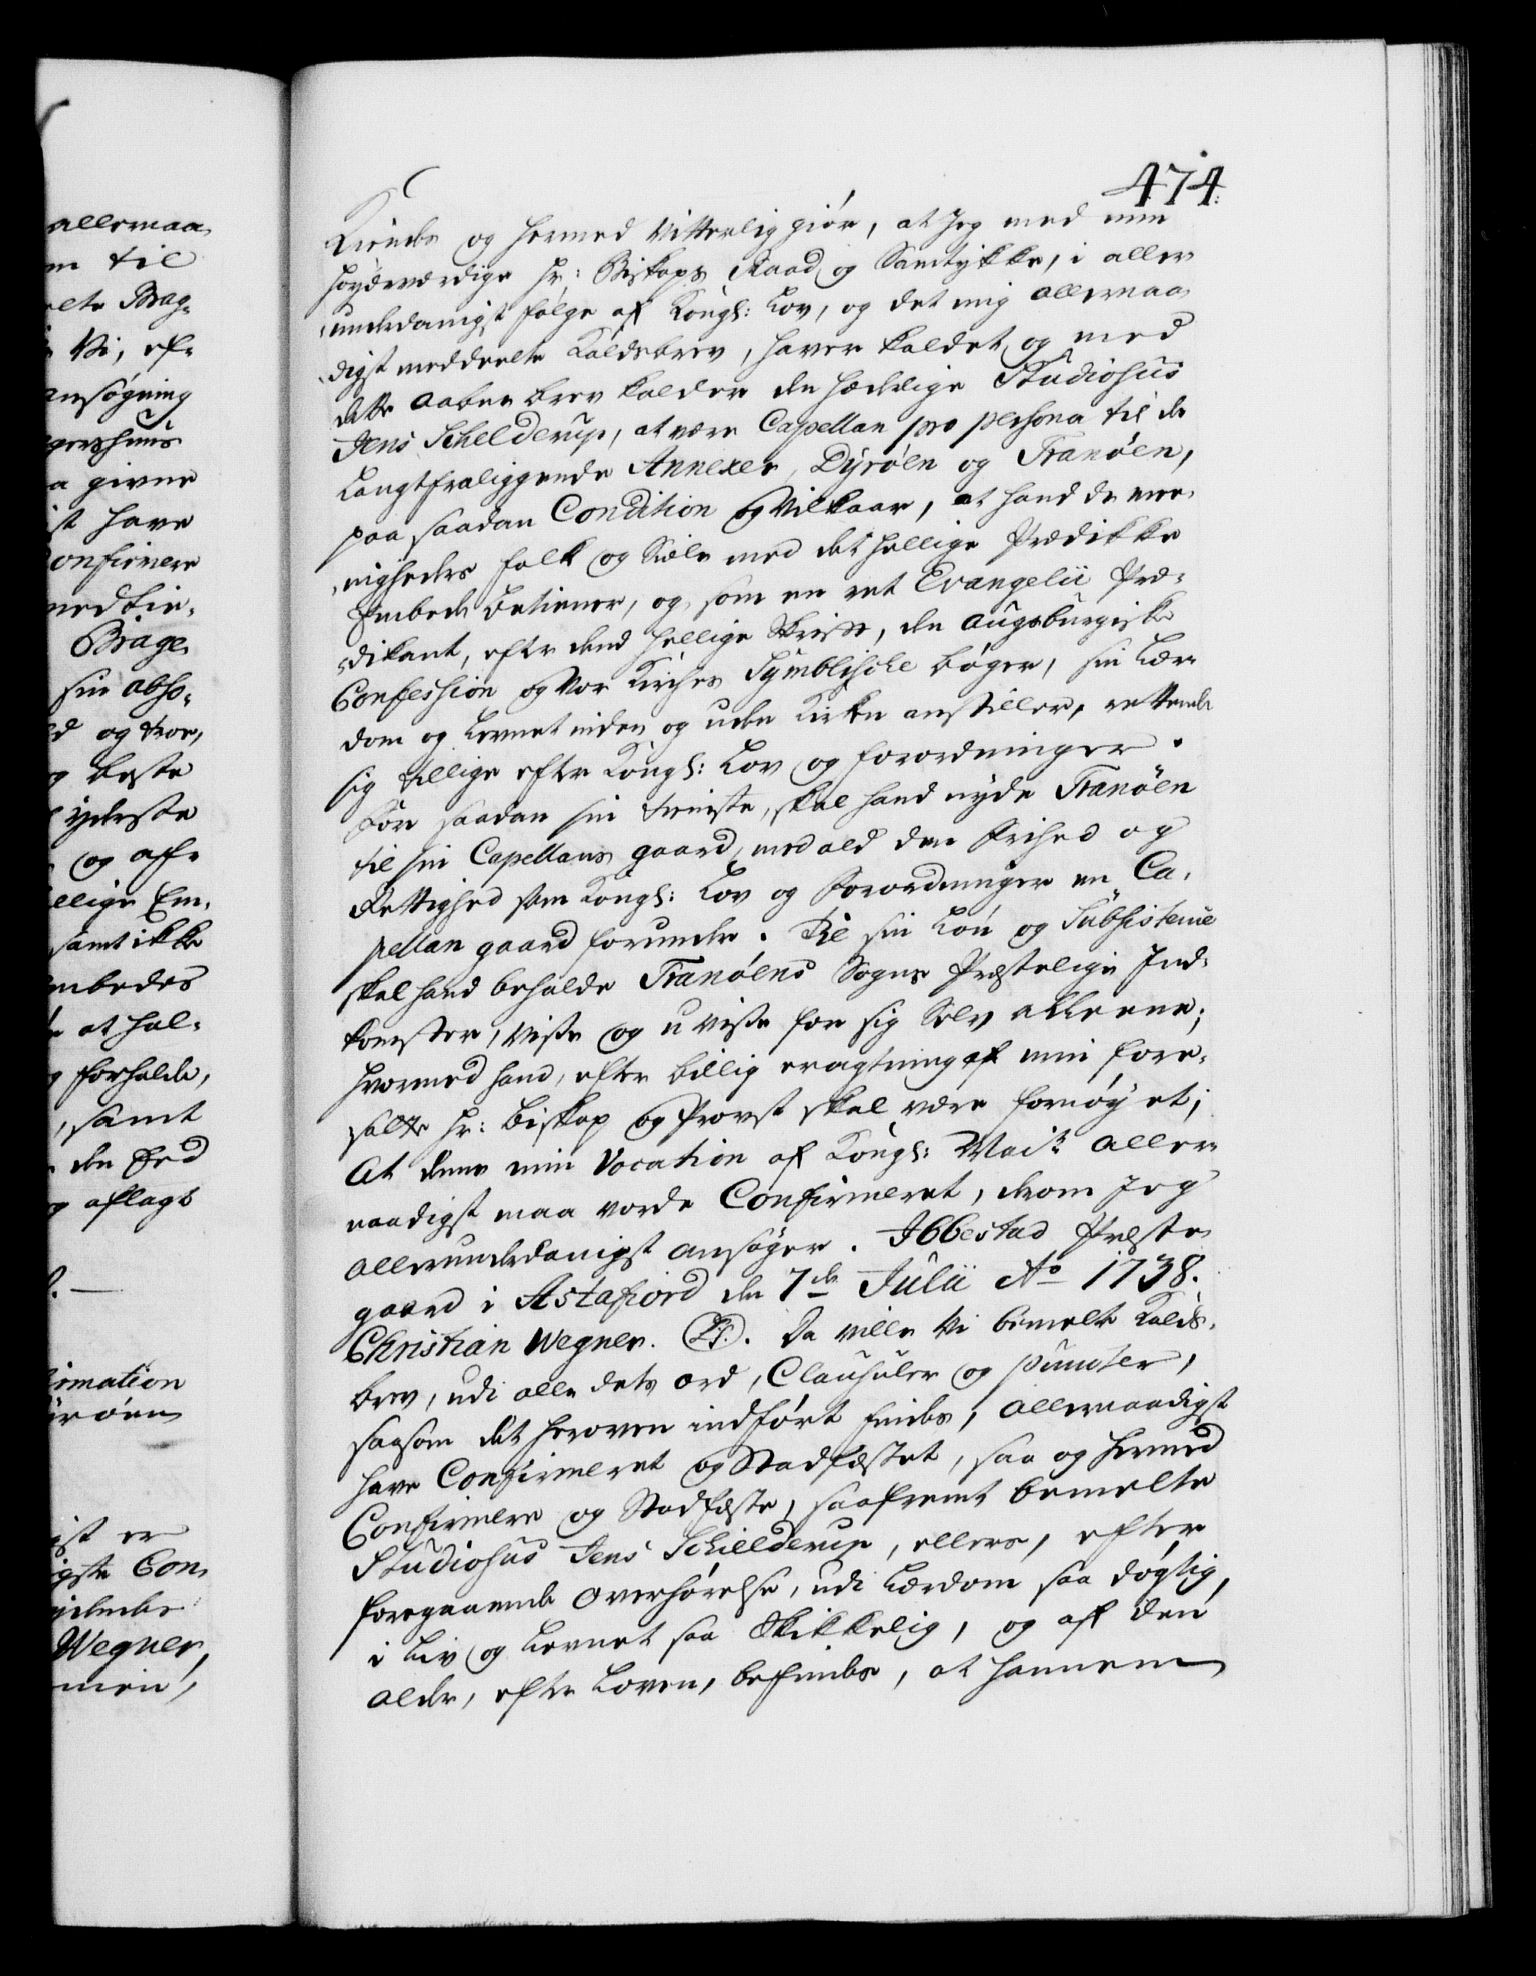 474.
Kiendes og hermed Vitterlig giör, at Jeg med min
Höyærværdige Hr: Biskops Raad og Samtykke, i aller
underdanigst fölge af Kongl: Lov, og det mig allernaa
digst meddeelte Kaldsbrev, haver kaldet og med
dette aabne brev kalder den hæderlige Studiosus
Jens Schelderup, at være Capellan pro persona til de
langtfraliggende Annexer, Dyröen og Tranöen,
paa saadan Condition og Vilkaar, at hand de me-
nigheders folk og Siele med det hellige Prædikke
Embede betiener, og som en ret Evangelii Præ-
dikant, efter dend hellige Skrift, den Augsburgiske
Confession og Vor Kirches Symbolische böger, sin Lær-
dom og Levnet inden og uden Kirken anstiller, rettende
sig tillige efter Kongl: Lov og forordninger.
For saadan sin tieniste, skal hand nyde Tranöen
til sin Capellans gaard, med ald den Frihed og
Rettighed som Kongl: Lov og Forordninger en Ca-
pellan gaard forunder. Til sin Lön og Subsistence
skal hand beholde Tranöens Sogns Præstelige Ind-
komster, visse og uvisse for sig Selv alleene;
hvormed hand, efter billig eragtning af min fore-
satte Hr: Biskop og Provst skal være fornöyet;
At denne min Vocation af Kongl: Mait aller-
naadigst maa vorde Confirmeret, derom Jeg
allerunderdanigst ansöger. Ibbestad Præste
gaard i Astafiord den 7de Julii Ao 1738.
Christian Wegner. (LS.). Da ville Vi bemelte Kalds-
brev, udi alle dets ord, Clausuler og puncter,
saasom det herovven indfört findes, allernaadigst
have Confirmeret og Stadfæstet, saa og hermed
Confirmere og Stadfæste, saafremt bemelte
Studiosus Jens Schielderup, ellers, efter
foregaaende overhörelse, udi Lærdom saa dögtig,
i Liv og Levnet saa Skikkelig, og af den
alder, efter Loven, befindes, at hannem
allernaa
til
Brag-
Vi, ef-
ansögning
givne
have
Confirmere
Brage
sin
og troe,
beste
yderste
og aff-
Em-
samt ikke
embedes
at hol-
forholde,
samt
den Eed
aflagt
er
Con
Wegner,